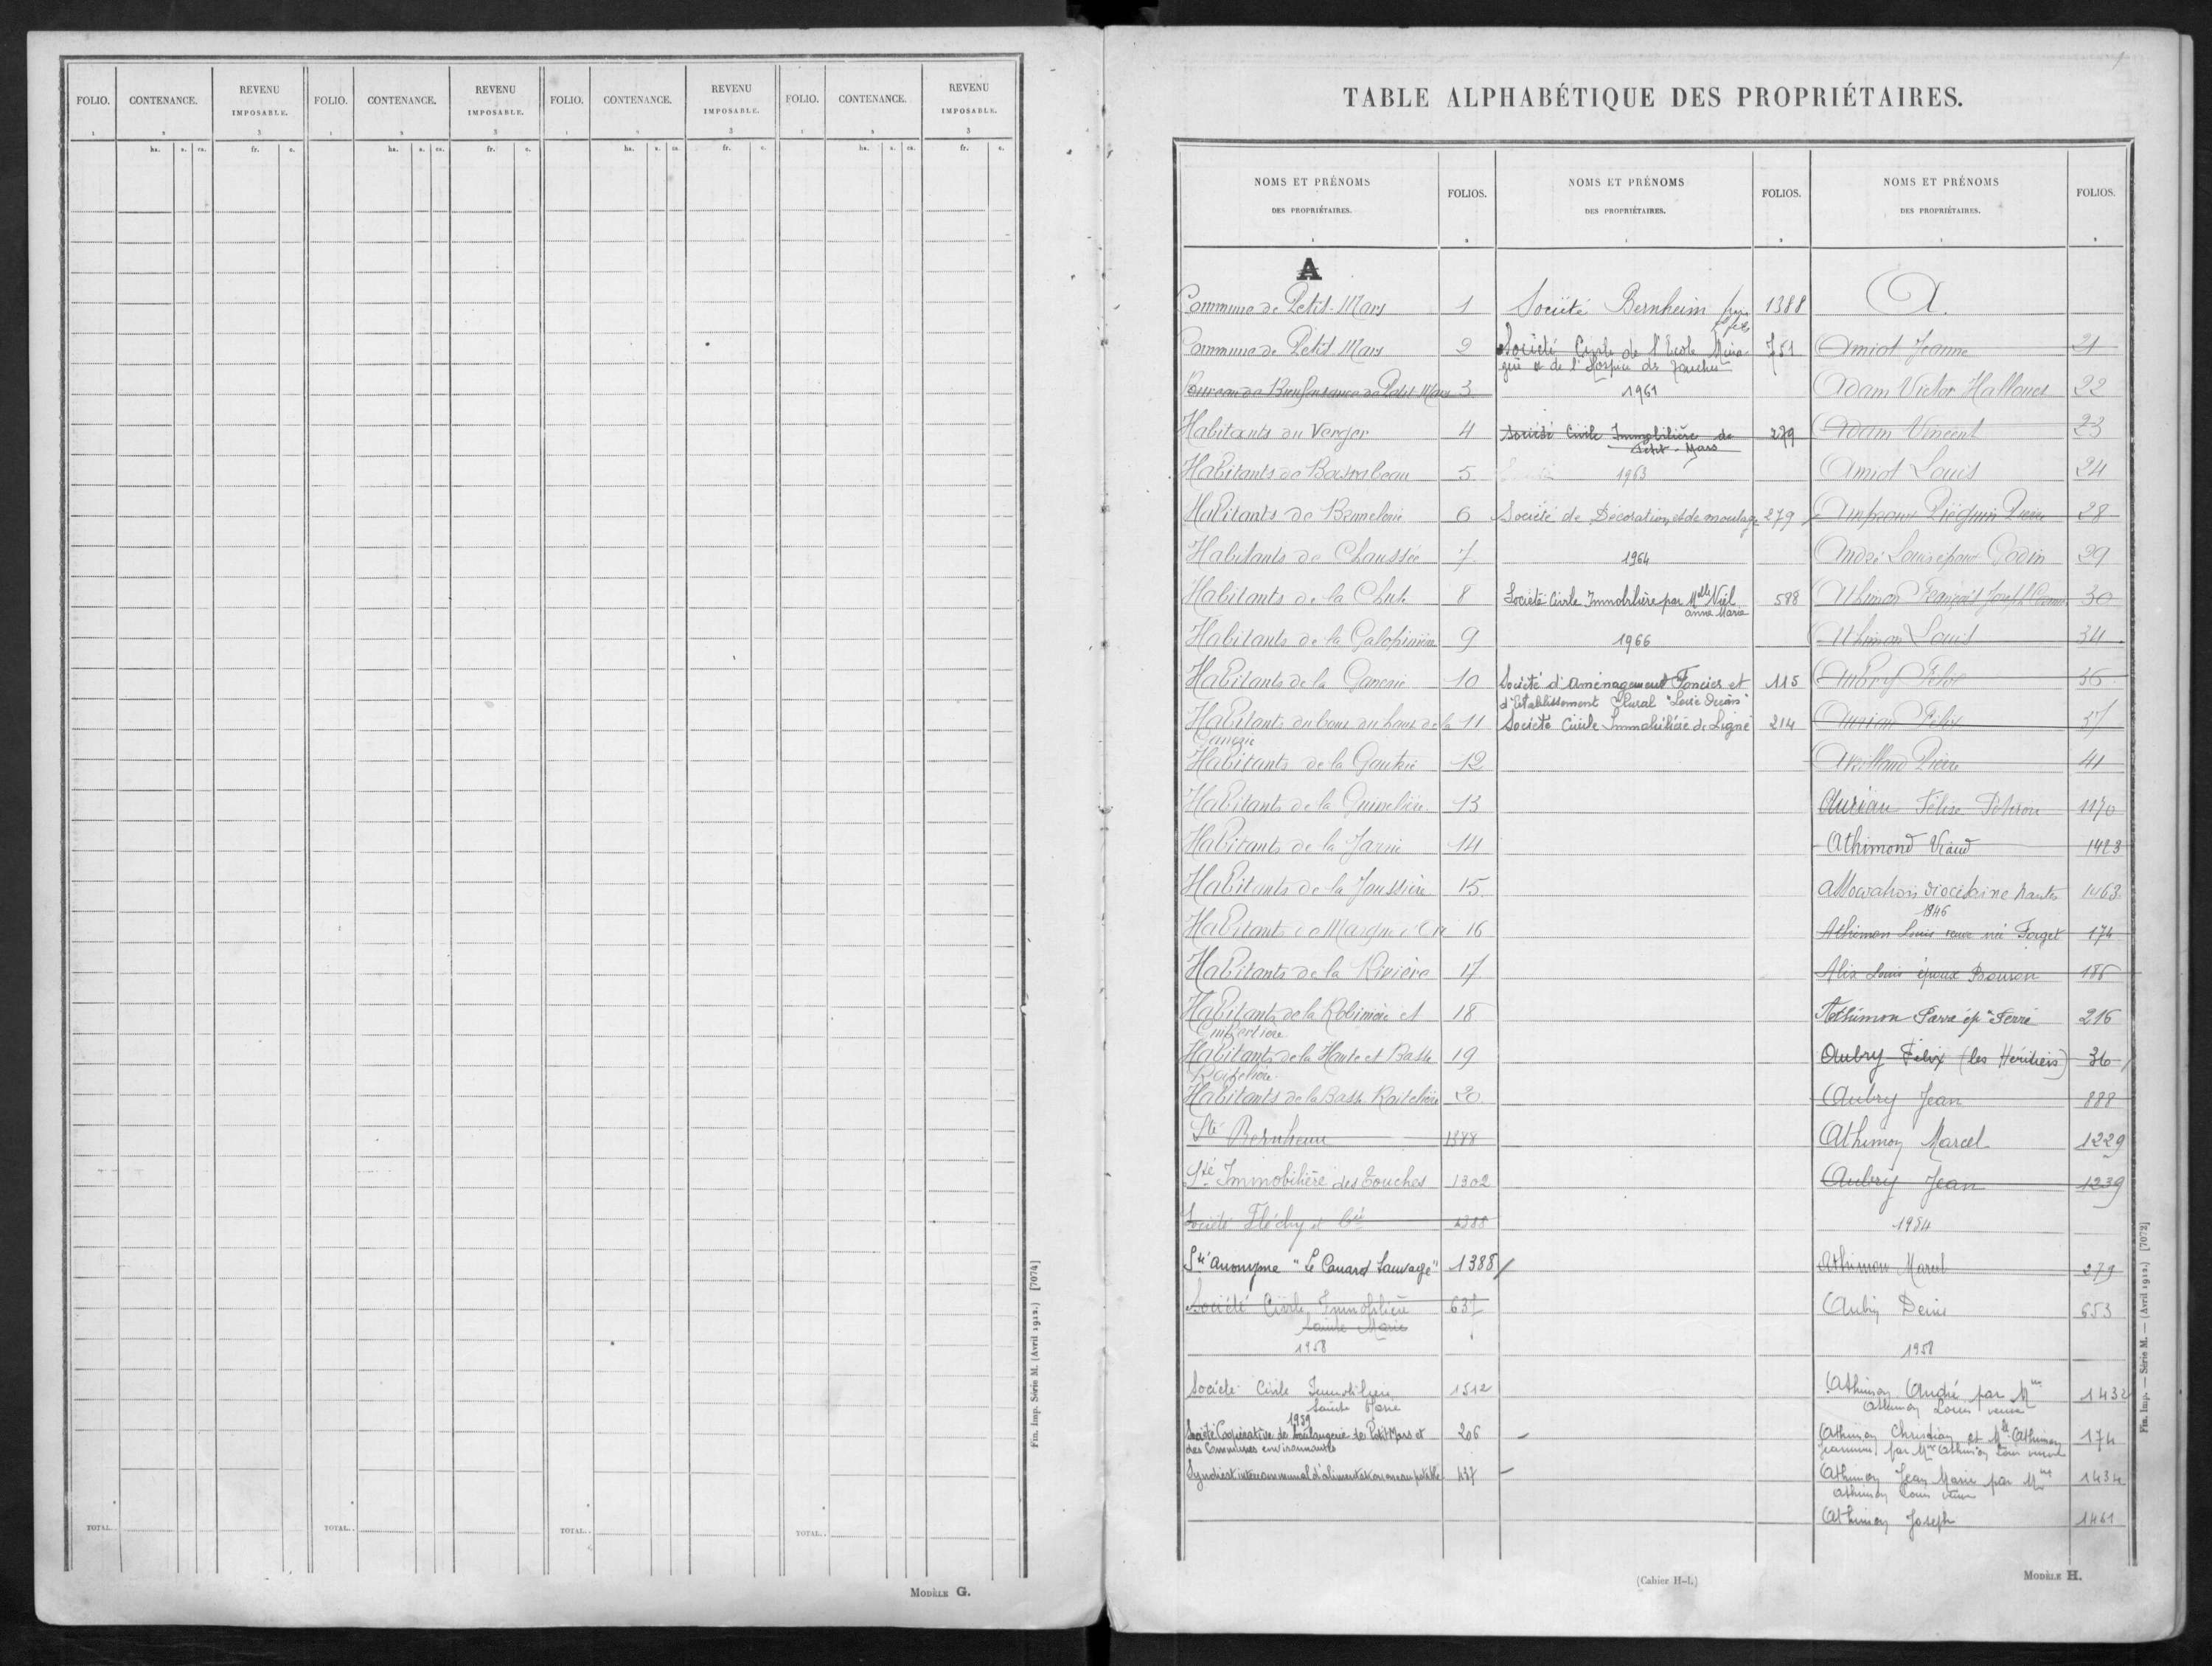 FOLIO. CONTENANCE. REVENU IMPOSABLE. FOLIO. CONTENANCE. REVENU IMPOSABLE. FOLIO. CONTENANCE. REVENU IMPOSABLE. FOLIO. CONTENANCE. REVENU IMPOSABLE.
1 2 3 1 2 3 1 2 3 1 2 3
ha. a. ca. fr. c. ha. a. ca. fr. c. ha. a. ca. fr. c. ha. a. ca. fr. c.
TOTAL.. TOTAL.. TOTAL.. TOTAL..
Fin. Imp. Série M. (Avril 1912.) [7074]
MODÈLE G.
TABLE ALPHABÉTIQUE DES PROPRIÉTAIRES.
NOMS ET PRÉNOMS
DES PROPRIÉTAIRES.
FOLIOS.
A
Commune de Petit-Mars 1
Commune de Petit Mars 2
Bureau de Bienfaisance de Petit Mars 3
Habitants du Verger 4
Habitants de 5
Habitants de 6
Habitants de Chaussée 7
Habitants de la Chute 8
Habitants de la Galopinière 9
Habitants de la Ganerie 10
Habitants du bas du haut de la 11
Ganerie
Habitants de la 12
Habitants de la 13
Habitants de la 14
Habitants de la Joussière 15
Habitants de 16
Habitants de la Rivière 17
Habitants de la Robinière et 18
Habitants de la Haute et Basse 19
Habitants de la Basse 20
Sté Bernheim 1388
Sté Immobilière des Touches 1302
Société Fléchy et Cie 1388
Sté anonyme "Le Canard Sauvage" 1388
Société Civile Immobilière 637
Sainte Marie
1958
Société Civile Immobilière 1512
Sainte Marie
1959
Société Coopérative de boulangerie de Petit Mars et 206
des Communes environnantes
Syndicat intercommunal d'alimentation en eau potable 437
NOMS ET PRÉNOMS
DES PROPRIÉTAIRES.
FOLIOS.
Société Bernheim frère 1388
et fils
Société Civile de l'Ecole Ména- 751
gère et de l'Hospice des Touches
1961
Société Civile Immobilière de 279
Petit-Mars
1963
Société de Décoration et de moulage 279
1964
Société Civile Immobilière par Melle Viel 588
Anne Marie
1966
Société d'Aménagement Foncier et 115
d'Etablissement Rural "Loire Océan"
Société Civile Immobilière de Ligné 214
NOMS ET PRÉNOMS
DES PROPRIÉTAIRES.
FOLIOS.
A.
Amiot Jeanne 21
Adam Victor Hallouet 22
Adam Vincent 23
Amiot Louis 24
28
André Louis époux Godin 29
Athimon François Joseph 30
Athimon Louis 34
Aubry Félix 36
Auriau Felix 37
Pierre 41
Auriau Félix 1170
Athimond Viaud 1423
Association diocésaine Nantes 1463
1946
Athimon Louis veuve née Forget 174
Alix Louis époux Bouron 186
Athimon Pierre ép. Ferré 216
Aubry Félix (les Héritiers) 36
Aubry Jean 888
Athimon Marcel 1229
Aubry Jean 1239
1954
Athimon Marcel 279
Aubin Denis 653
1958
Athimon André par Mme 1432
Athimon Louis veuve
Athimon Christian et Mlle Athimon 174
Jeannine par Mme Athimon Louis veuve
Athimon Jean Marie par Mme 1434
Athimon Louis veuve
Athimon Joseph 1461
Fin. Imp. — Série M. — (Avril 1912.) [7072]
(Cahier H-I.)
MODÈLE H.